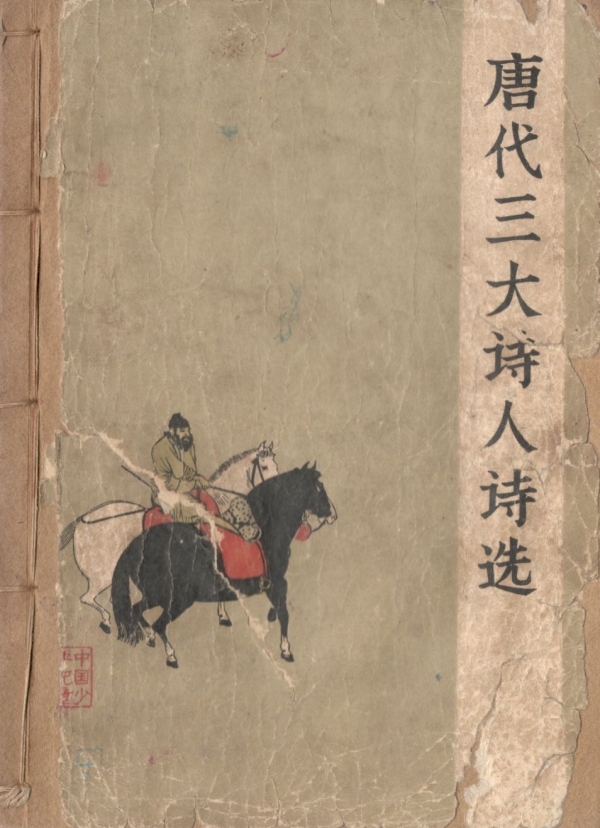 唐代三大诗人诗选
中国少